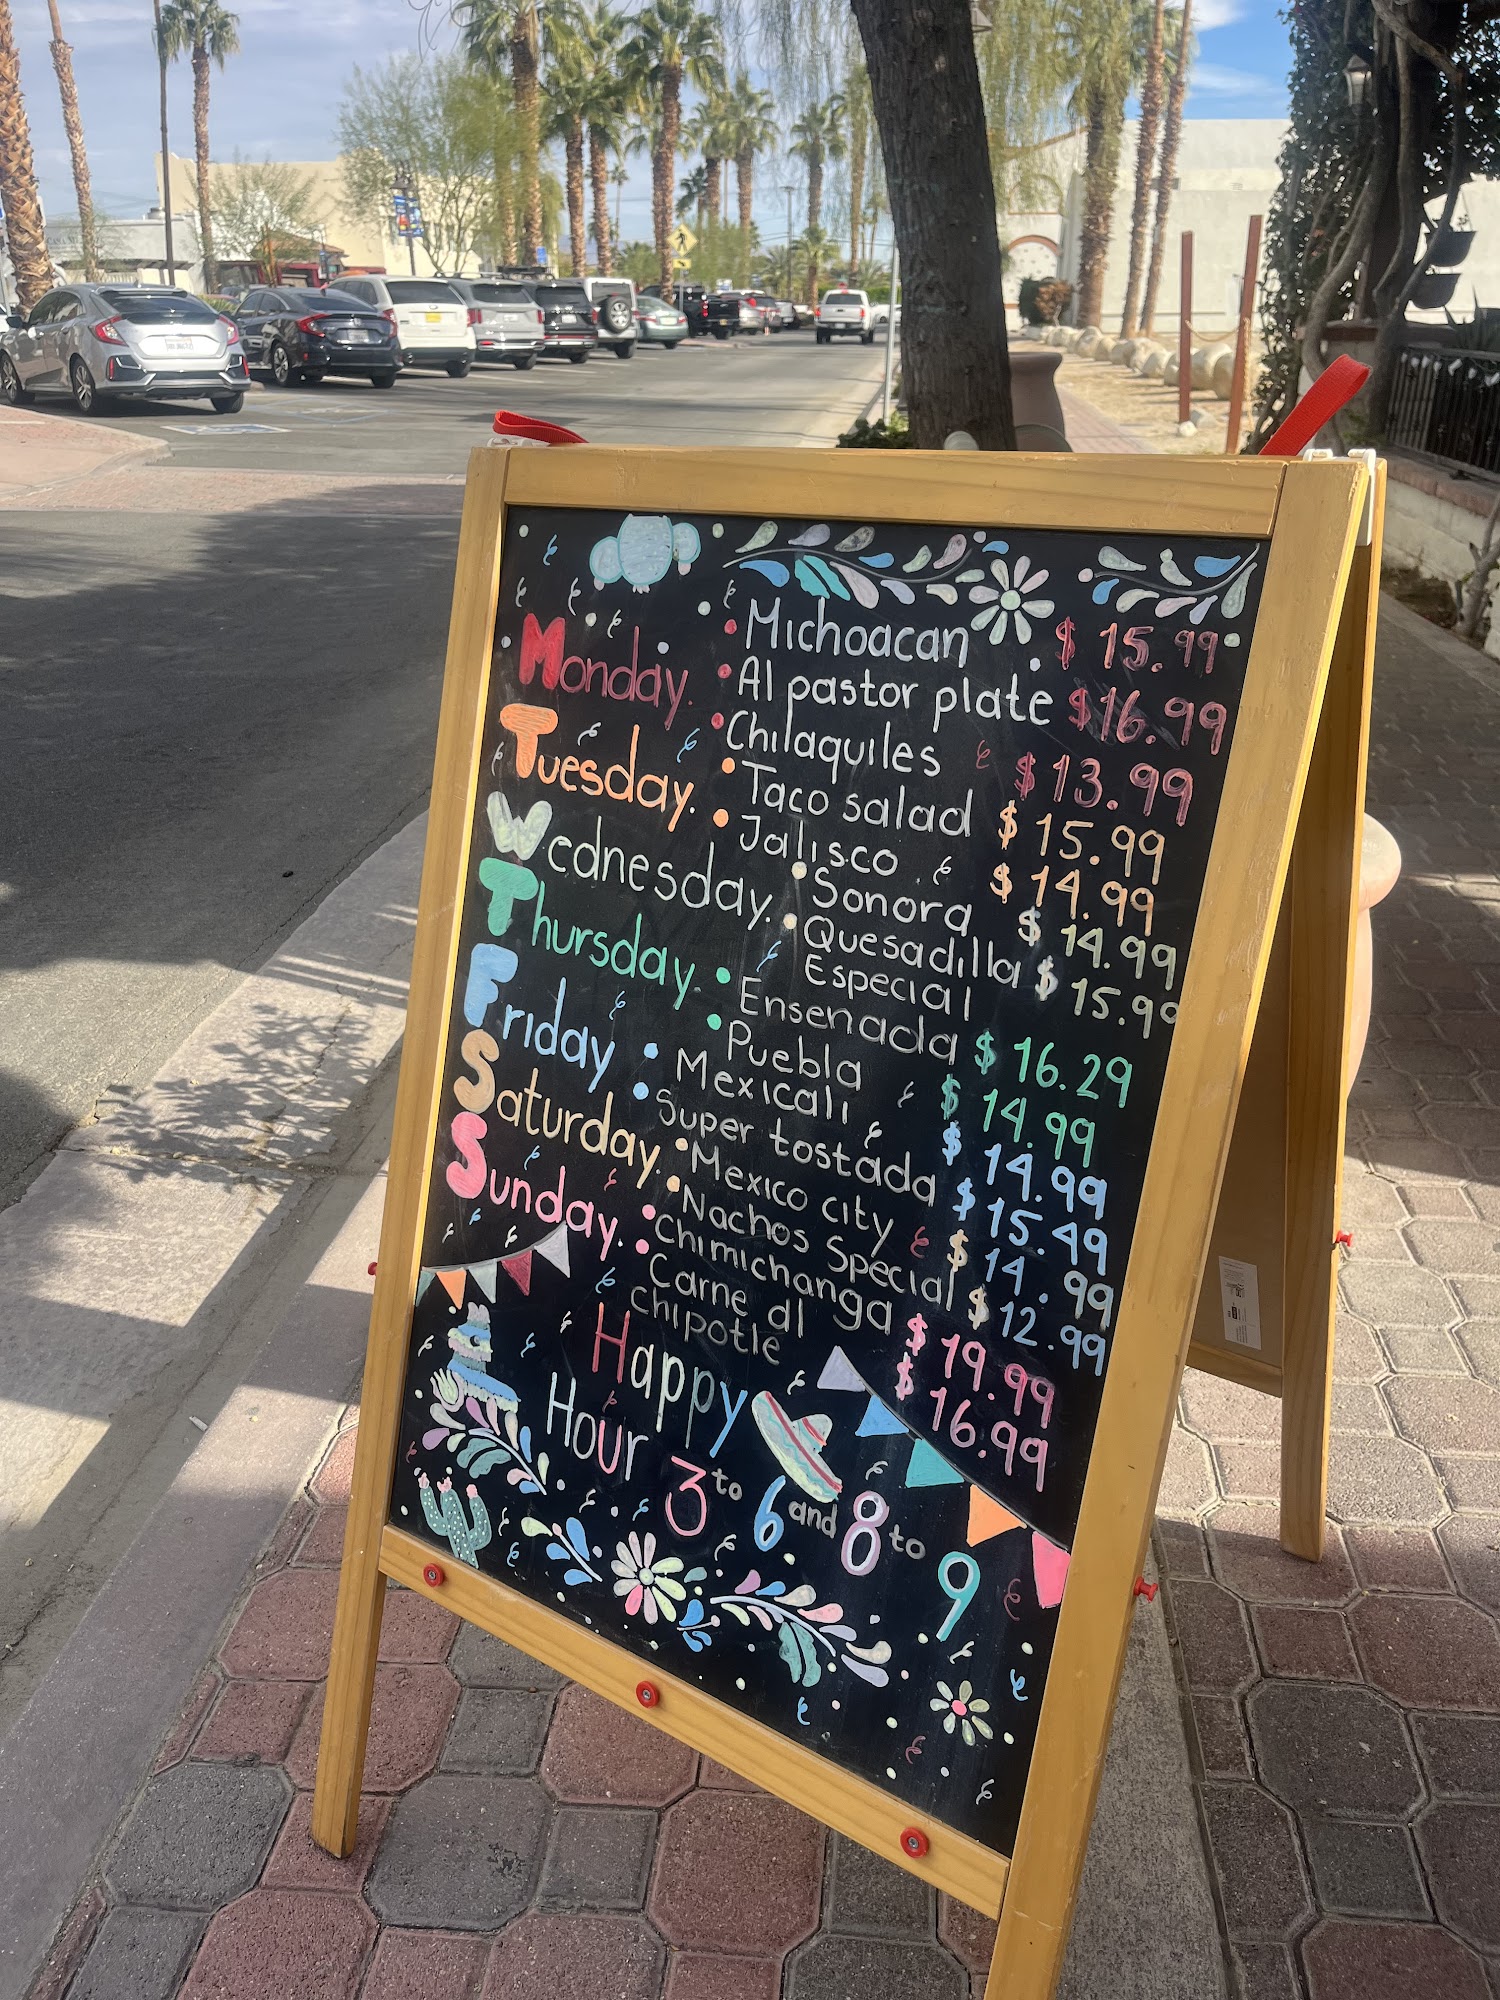 Michoacan $ 15.99
Monday. Al pastor plate $16.99
Chilaquiles $13.99
Tuesday. Taco salad $ 15.99
Jalisco $ 14.99
Wednesday. Sonora $ 14.99
Quesadilla $ 15.99
Especial
Thursday. Ensenada $ 16.29
Puebla $ 14.99
Friday Mexicali $ 14.99
Super tostada $ 15.49
Saturday. Mexico city $ 14.99
Nachos Special $ 12.99
Sunday. Chimichanga $ 19.99
Carne al $ 16.99
chipotle
Happy
Hour 3 to 6 and 8 to 9